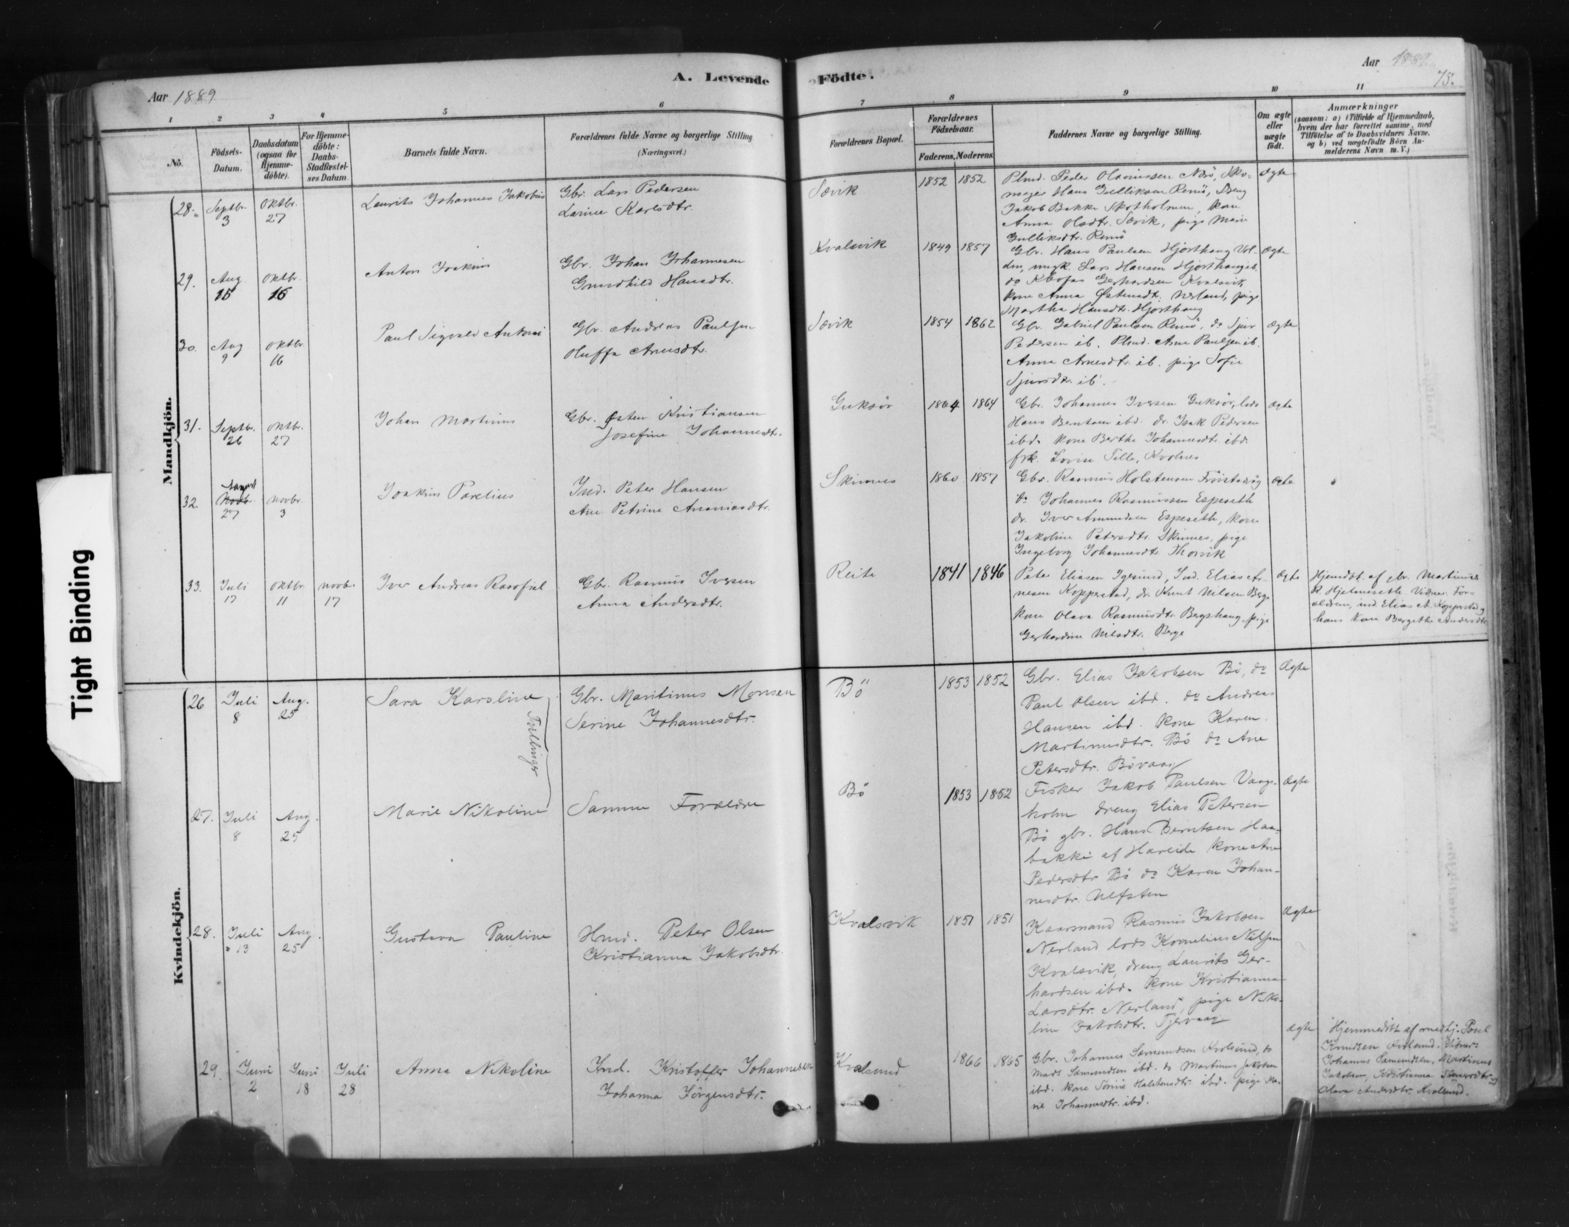 Aar 1889.
A. Levende
Födte.
Aar 1889.
78.
1
2
3
4
5
6
7
8
9
10
11
No.
Födsels-
Datum.
Daabsdatum
(ogsaa for
Hjemme-
döbte).
For Hjemme-
döbte:
Daabs-
Stadfæstel-
ses Datum.
Barnets fulde Navn.
Forældrenes fulde Navne og borgerlige Stilling
(Næringsvei.)
Forældrenes Bopæl.
Forældrenes
Födselsaar.
Faderens. Moderens.
Faddernes Navne og borgerlige Stilling.
Om ægte
eller
uægte
födt.
Anmærkninger
(saasom: a) i Tilfælde af Hjemmedaab,
hvem der har forrettet samme, med
Tilföielse af to Daabsvidners Navne,
og b) ved uægtefödte Börn An-
melderens Navn m. V.)
Mandkjön.
28.
Septbr.
3
Oktbr.
27
Laurits Johannes Jakobus
Gbr. Lars Pedersen
Larine Karlsdtr.
Sævik
1852 1852
Skotholmen, kone
Anna Olsdtr. Sævik, pige
Gulliksdtr. Remö
Ægte
29.
Aug
15
Oktbr.
16
Anton Joakim
Gbr. Johan Johannesen
Gunnhild Hansdtr.
Kvalsvik
1849 1857
Gbr. Hans Paulsen Hjorthaug
Lars Hansen
Gerhardsen Kvalsvik
kone Anna Nerland, pige
Martha Hansdtr. Hjorthaug
Ægte
30.
Aug
9
Oktbr
16
Paul Sigvald
Gbr. Andreas Paulsen
Oluffa Arnesdtr.
Sævik
1854 1862
Gbr. Gabriel Paulsen Remö, do Sjur
Pedersen ib. Arne Paulsen ib.
Anna Arnesdtr. ib. pige Sofie
Sjursdtr. ib.
Ægte
31.
Septbr.
26
Oktbr.
27
Johan Martinus
Gbr. Østen Kristiansen
Josefine Johannesdtr.
Gurksör
1864 1864
Gbr. Johannes Iversen Gurksör, lods
Hans Berntsen ibd. dr. Isak Pedersen
ibd. kone Berthe Johannesdtr. ibd.
frk. Lovise
Ægte
32.
August
27
Novbr.
3
Joakim Parelius
Ind. Peter Hansen
Ane Petrine Ananiasdtr.
Skinnes
1860 1857
Gbr. Rasmus Holstensen
do Johannes Rasmussen Espeseth
dr. Iver Amundsen Espeseth, kone
Jakobine Petersdtr. Skinnes, pige
Ingeborg Johannesdtr.
Ægte
33.
Juli
17
Oktbr.
11
Novb.
17
Iver Andreas
Gbr. Rasmus Iversen
Anna Andersdtr.
Reite
1841 1846
Peter Eliasen Igesund, Ind. Elias Ar-
nesen Koppestad, dr. Knut Nilsen Berge
kone Olava Rasmusdtr. Bergshaug, pige
Gerhardine Nilsdtr. Berge
Ægte
Hjemdbt. af gbr. Martinus
R. Hjelmeseth. Vidner: For-
ældrene, ind. Elias A. Koppestad og
hans kone Bergethe Andersdtr.
Kvindekjön.
26
Juli
8
Aug.
25
Sara Karoline
Tvillinger
Gbr. Martinus Monsen
Serine Johannesdtr.
Bö
1853 1852
Gbr. Elias Jakobsen Bö, do
Paul Olsen ibd. do Andreas
Hansen ibd. kone Karen
Martinusdtr. Bö do Ane
Petersdtr. Bövaag
Ægte
27.
Juli
8
Aug.
25
Marie Nikoline
Samme Forældre
Bö
1853 1852
Fisker Jakob Paulsen Vaag-
holm dreng Elias Petersen
Bö gbr. Hans Berntsen Haa-
bakke af Hareide kone Ane
Pedersdtr Bö do Karen Johan-
nesdtr. Ulfsten
Ægte
28.
Juli
13
Aug.
25
Gustava Pauline
Hmd. Peter Olsen
Kristianna Jakobsdtr.
Kvalsvik
1851 1851
Kaarmand Rasmus Jakobsen
Nerland lods Kornelius Nilsen
Kvalsvik, dreng Laurits Ger-
hardsen ibd. kone Kristianna
Larsdtr. Nerland pige Niko-
line Jakobsdtr.
Ægte
29.
Juni
2
Juni
18
Juli
28
Anna Nikoline
Ind. Kristoffer Johannesen
Johanna Jörgensdtr.
Kvalsund
1866 1865
Gbr. Johannes Samundsen Kvalsund, do
Mads Samundsen ibd. do Martinus Jakobsen
ibd. kone Serine Halstensdtr. ibd. pige Ha-
ne Johannesdtr. ibd.
Ægte
Hjemmedöbt af Poul
Knudsen Kvalsund. Vidner:
Johannes Samundsen, Martinus
Jakobsen, Kristianna
Olava Andersdtr. Kvalsund.
Tight Binding